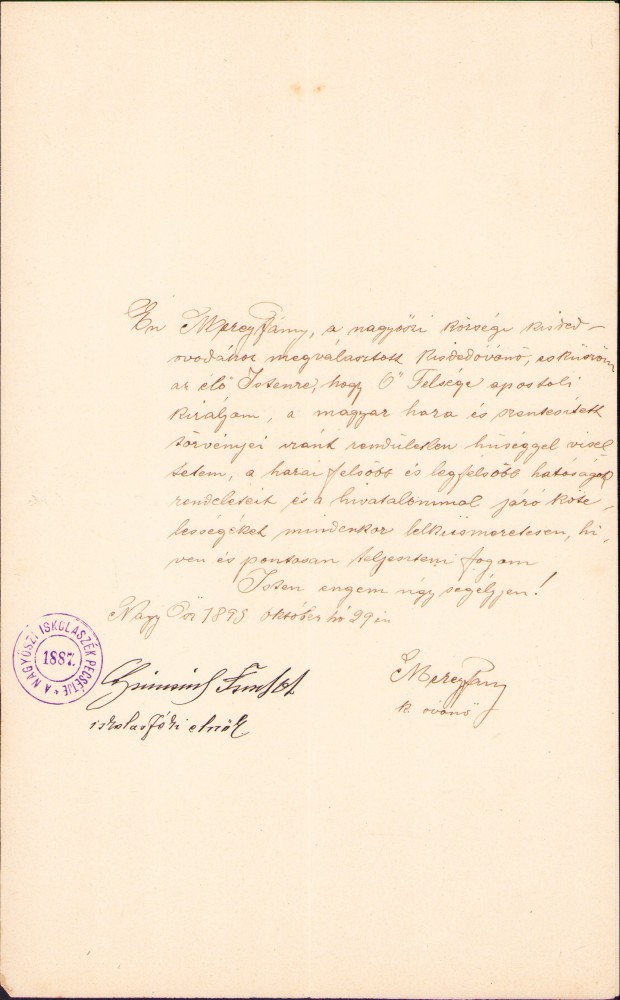 Én Mercz Fány, a nagyőszi községe kisded-
ovodához megválasztott kisdedóvónő, esküszöm
az élő Istenre, hogy Ő Felsége apostoli
királyom, a magyar haza és szentesített
törvényei iránt rendületlen hűséggel visel
tetem, a hazai felsőbb és legfelsőbb hatóságok
rendeleteit és a hivatalommal járó köte-
lességeket mindenkor lelkiismeretesen, hi-
ven és pontosan teljesíteni fogom
Isten engem úgy segélyjen!
Nagy Ősz 1895 október hó 29 én
A NAGYŐSZI ISKOLASZÉK PECSÉTJE
1887.
Mercz Fány
k. óvónő
iskolaszéki elnök